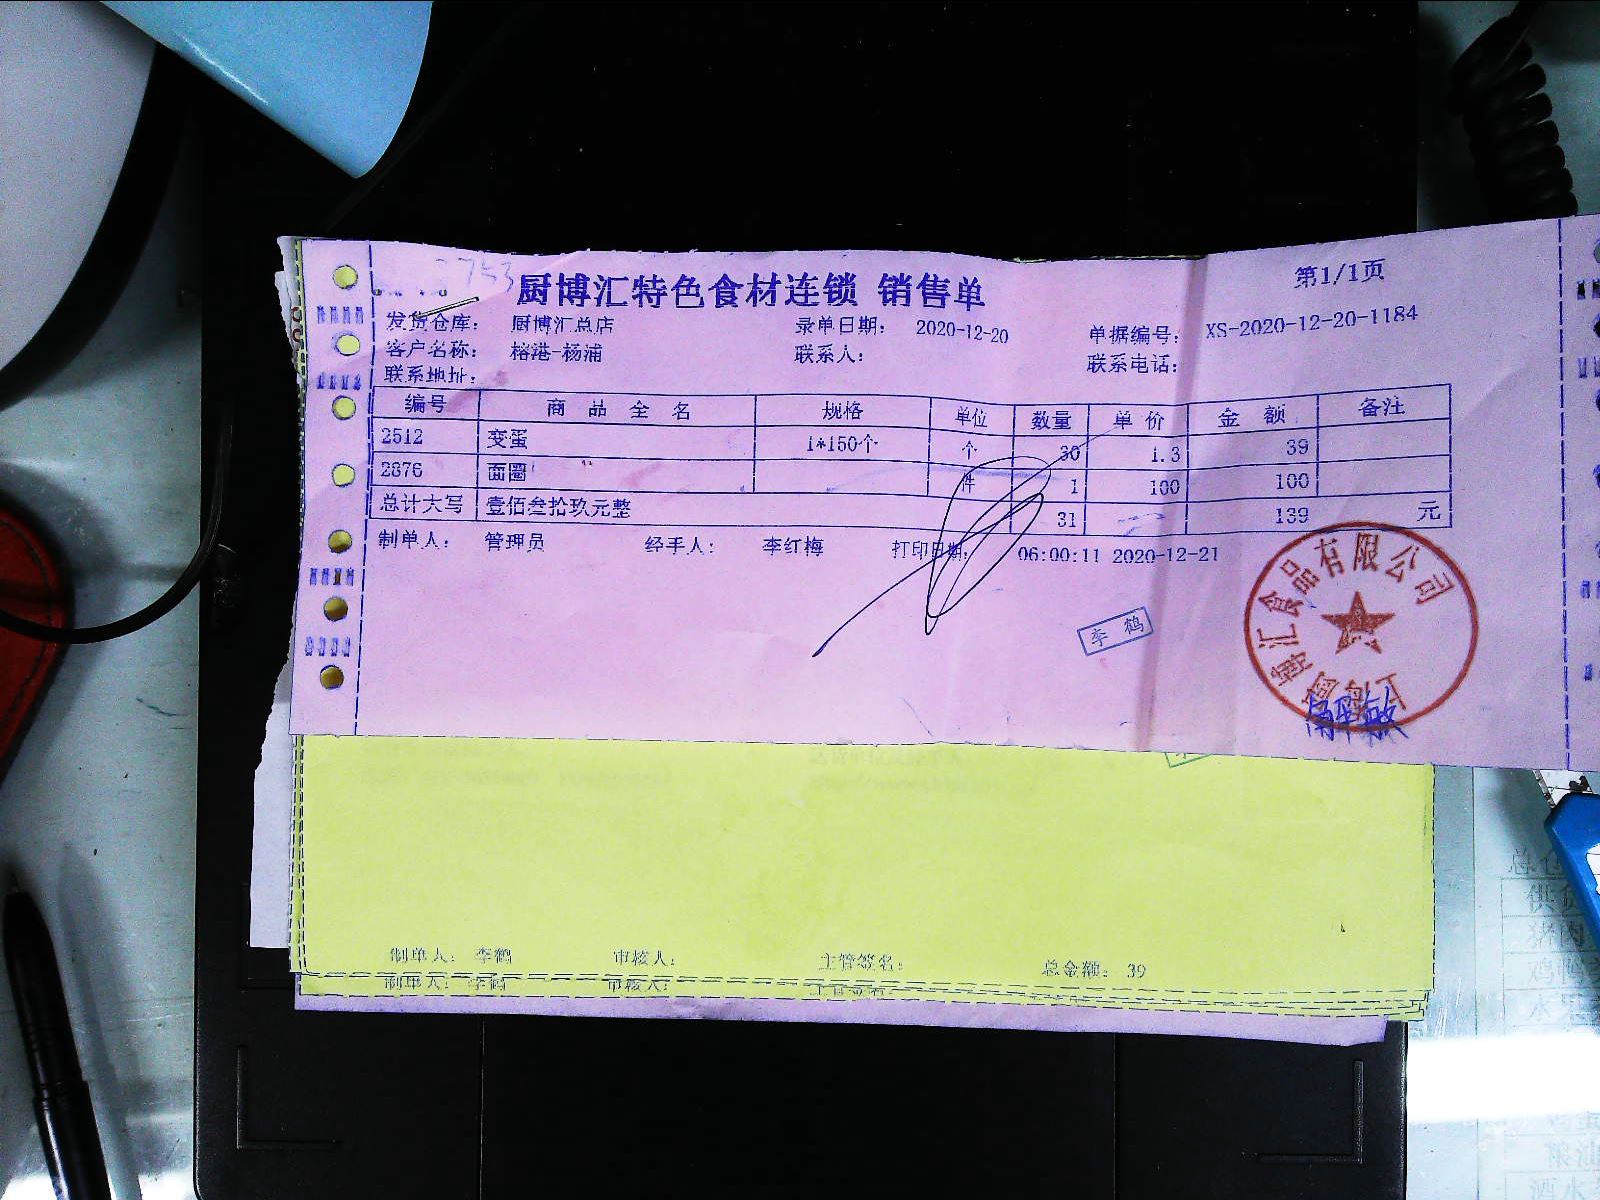 753
厨博汇特色食材连锁 销售单 第1/1页
发货仓库: 厨博汇总店 录单日期: 2020-12-20 单据编号: XS-2020-12-20-1184
客户名称: 榕港-杨浦 联系人: 联系电话:
联系地址:
编号 商品全名 规格 单位 数量 单价 金额 备注
2512 变蛋 1*150个 个 30 1.3 39
2876 面圈 件 1 100 100
总计大写 壹佰叁拾玖元整 31 139 元
制单人: 管理员 经手人: 李红梅 打印日期: 06:00:11 2020-12-21
李鹤
上海厨博汇食品有限公司
制单人: 李鹤 审核人: 主管签名: 总金额: 39
制单人: 李鹤 审核人: